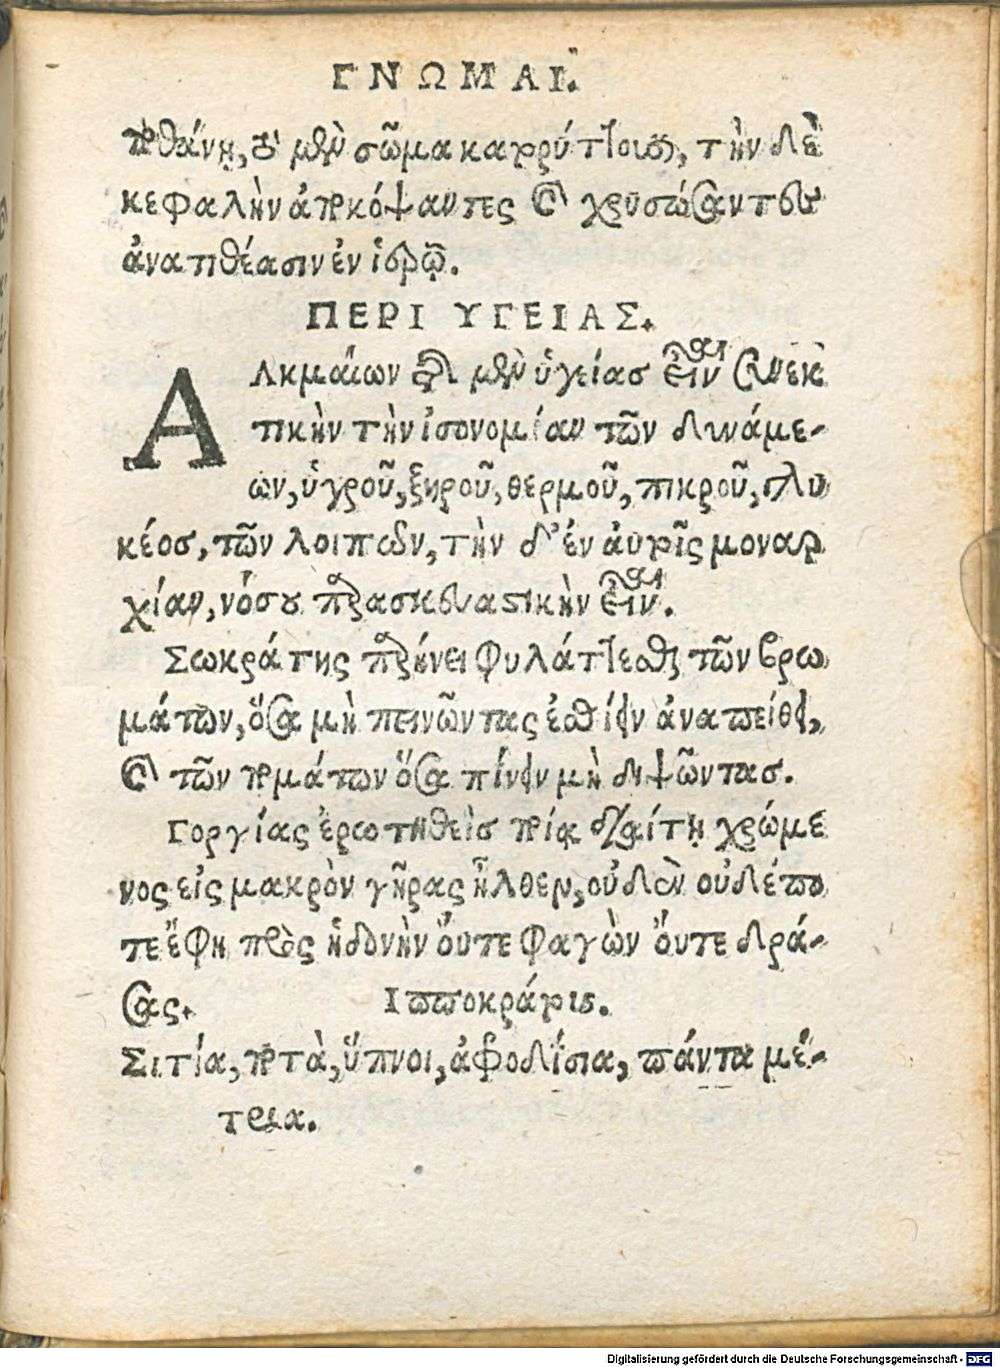 ΓΝΩΜΑΙ.
ποθάνῃ, τὸ μὲν σῶμα καταρύττουσι, τὴν δὲ
κεφαλὴν ἀποκόψαντες καὶ χρυσώσαντες
ἀνατιθέασιν ἐν ἱερῷ.
ΠΕΡΙ ΥΓΕΙΑΣ.
ΑΛκμαίων ἔφη μὲν ὑγείας εἶναι συνεκ
τικὴν τὴν ἰσονομίαν τῶν δυνάμε-
ων, ὑγροῦ, ξηροῦ, θερμοῦ, πικροῦ, γλυ
κέος, τῶν λοιπῶν, τὴν δ' ἐν αὐτοῖς μοναρ
χίαν, νόσου παρασκευαστικὴν εἶναι.
Σωκράτης παρῄνει φυλάττεσθαι τῶν βρω
μάτων, ὅσα μὴ πεινῶντας ἐσθίειν ἀναπείθει,
καὶ τῶν πομάτων ὅσα πίνειν μὴ διψῶντας.
Γοργίας ἐρωτηθεὶς ποίᾳ διαίτῃ χρώμε
νος εἰς μακρὸν γῆρας ἦλθεν, οὐδὲν οὐδέπο
τε ἔφη πρὸς ἡδονὴν οὔτε φαγὼν οὔτε δρά-
σας. Ιπποκράτους.
Σιτία, ποτὰ, ὕπνοι, ἀφροδίσια, πάντα μέ-
τρια.
Digitalisierung gefördert durch die Deutsche Forschungsgemeinschaft - DFG